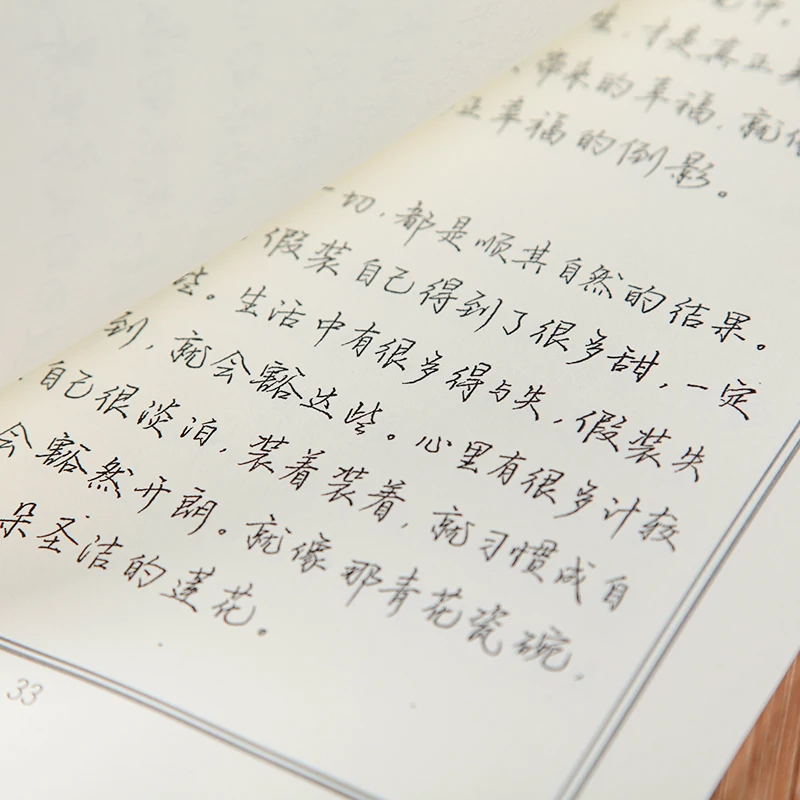 中。
生，才是真正
带来的幸福，就像
正幸福的倒影。
一切，都是顺其自然的结果。
假装自己得到了很多甜，一定
些。生活中有很多得与失，假装失
到，就会豁达些。心里有很多计较
，自己很淡泊，装着装着，就习惯成自
会豁然开朗。就像那青花瓷碗，
朵圣洁的莲花。
33